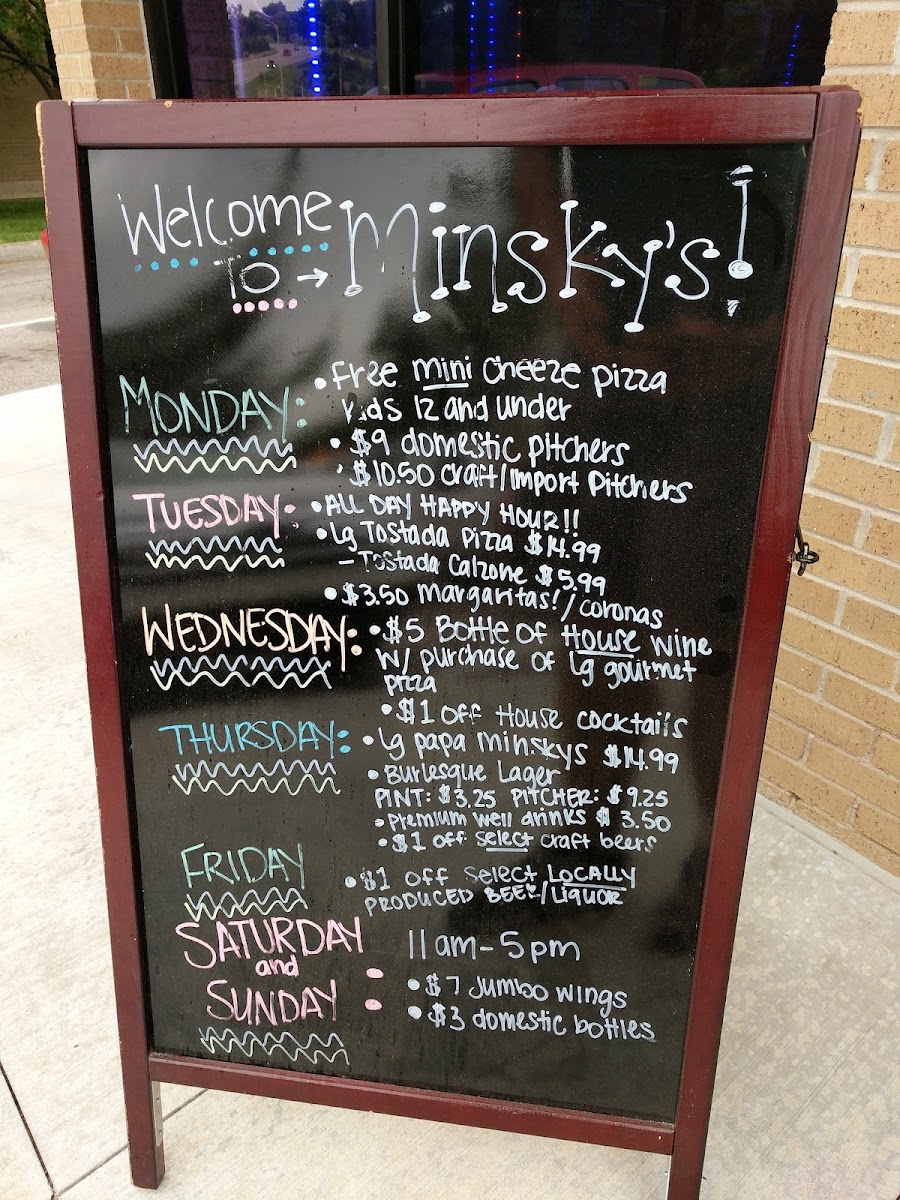 Welcome
To → Minsky's!
MONDAY:
• Free mini cheeze pizza
kids 12 and under
• $9 domestic pitchers
• $10.50 craft/import pitchers
TUESDAY:
• ALL DAY HAPPY HOUR!!
• Lg Tostada Pizza $14.99
- Tostada Calzone $5.99
• $3.50 margaritas!/coronas
WEDNESDAY:
• $5 Bottle of House wine
w/ purchase of Lg gourmet
pizza
• $1 off House cocktails
THURSDAY:
• Lg papa minskys $14.99
• Burlesque Lager
PINT: $3.25 PITCHER: $9.25
• Premium well drinks $3.50
• $1 off select craft beers
FRIDAY
• $1 off select LOCALLY
PRODUCED BEER/LIQUOR
SATURDAY
and
SUNDAY :
11am-5pm
• $7 Jumbo wings
• $3 domestic bottles